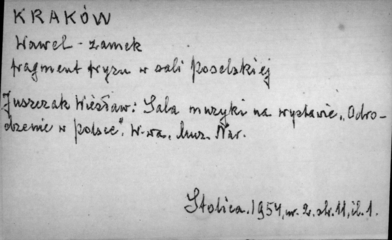 KRAKÓW
Wawel - zamek
fragment fryzu w sali poselskiej
Juszczak Wiesław: Sala muzyki na wystawie „Odro-
dzenie w Polsce". W-wa. Muz. Nar.
Stolica. 1954, nr. 2. str. 11, il. 1.